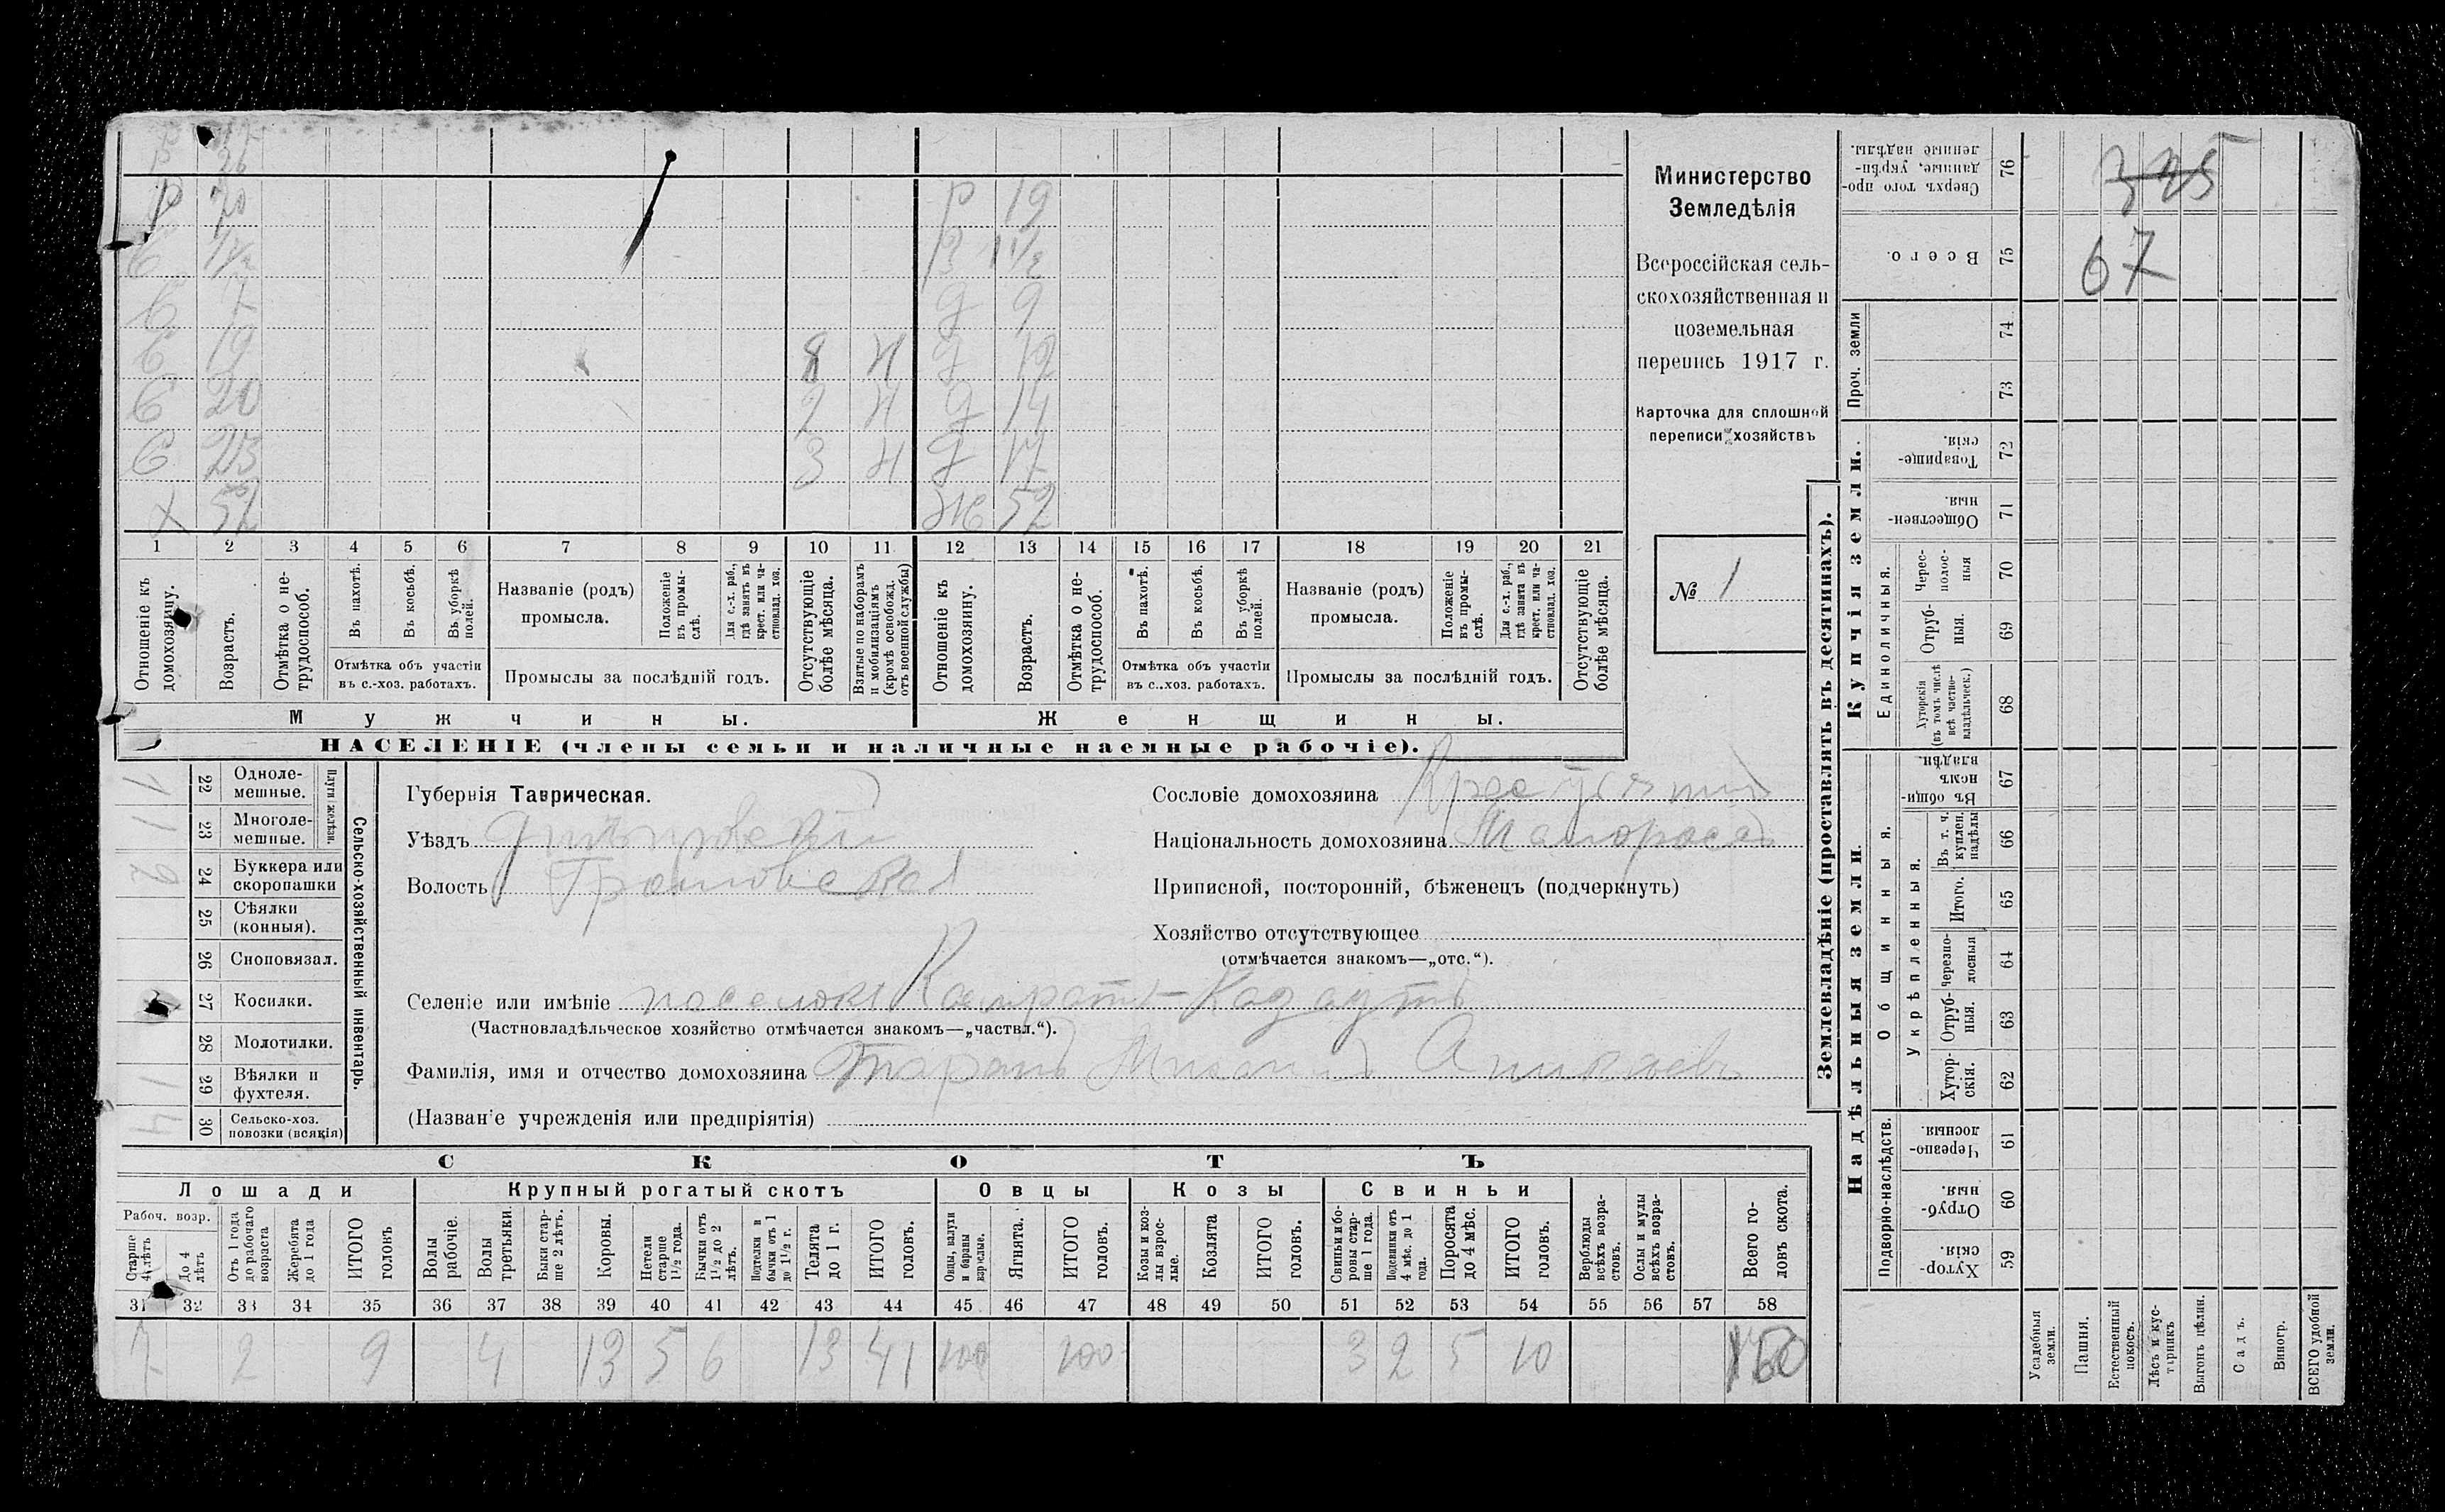 Р 19
Р 70
З 1 1/2
С 7
9
С 19
8
12
С 20
2
14
С 23
3
17
Х 52
Ж 52
1 2 3 4 5 6 7 8 9 10 11 12 13 14 15 16 17 18 19 20 21
Отношеніе къ домохозяину.
Возрастъ.
Отмѣтка о нетрудоспособ.
Въ пахотѣ.
Въ косьбѣ.
Въ уборкѣ полей.
Отмѣтка объ участіи въ с.-хоз. работахъ.
Названіе (родъ) промысла.
Положеніе въ промыслѣ.
Для с.-х. раб., гдѣ занятъ въ крест. или частновлад. хоз.
Промыслы за послѣдній годъ.
Отсутствующіе болѣе мѣсяца.
Взятые по наборамъ и мобилизаціямъ (кромѣ освобожд. отъ военной службы)
Отношеніе къ домохозяину.
Возрастъ.
Отмѣтка о нетрудоспособ.
Въ пахотѣ.
Въ косьбѣ.
Въ уборкѣ полей.
Отмѣтка объ участіи въ с.-хоз. работахъ.
Названіе (родъ) промысла.
Положеніе въ промыслѣ.
Для с.-х. раб., гдѣ занята въ крест. или частновлад. хоз.
Промыслы за послѣдній годъ.
Отсутствующіе болѣе мѣсяца.
Мужчины.
Женщины.
НАСЕЛЕНІЕ (члены семьи и наличные наемные рабочіе).
Министерство
Земледѣлія
Всероссійская сель-
скохозяйственная и
поземельная
перепись 1917 г.
Карточка для сплошной
переписи хозяйствъ
№ 1
Сельско-хозяйственный инвентарь.
Плуги желѣзн.
22 Одноле-
мешные.
1
23 Многоле-
мешные.
1
24 Буккера или
скоропашки
2
25 Сѣялки
(конныя).
26 Сноповязал.
27 Косилки.
28 Молотилки.
29 Вѣялки и
фухтеля.
1
30 Сельско-хоз.
повозки (всякія)
4
Губернія Таврическая.
Уѣздъ Днѣпровскій
Волость
Сословіе домохозяина
Національность домохозяина Малоросъ
Приписной, посторонній, бѣженецъ (подчеркнуть)
Хозяйство отсутствующее
(отмѣчается знакомъ—„отс.“).
Селеніе или имѣніе поселокъ
(Частновладѣльческое хозяйство отмѣчается знакомъ—„частвл.“).
Фамилія, имя и отчество домохозяина Таранъ Михаилъ
(Названіе учрежденія или предпріятія)
СКОТЪ
Лошади
Крупный рогатый скотъ
Овцы
Козы
Свиньи
Рабоч. возр.
Старше 4 лѣтъ
До 4 лѣтъ
Отъ 1 года до рабочаго возраста
Жеребята до 1 года
ИТОГО головъ
Волы рабочіе.
Волы третьяки.
Быки старше 2 лѣтъ.
Коровы.
Нетели старше 1 1/2 года.
Бычки отъ 1 1/2 до 2 лѣтъ.
Подтелки и бычки отъ 1 до 1 1/2 г.
Телята до 1 г.
ИТОГО головъ.
Овцы, валухи и бараны взрослые.
Ягнята.
ИТОГО головъ.
Козы и козлы взрослые.
Козлята
ИТОГО головъ.
Свиньи и боровы старше 1 года.
Подсвинки отъ 4 мѣс. до 1 года.
Поросята до 4 мѣс.
ИТОГО головъ.
Верблюды всѣхъ возрастовъ.
Ослы и мулы всѣхъ возрастовъ.
Всего головъ скота.
31 32 33 34 35 36 37 38 39 40 41 42 43 44 45 46 47 48 49 50 51 52 53 54 55 56 57 58
7 2 9 4 13 5 6 13 41 100 100 3 2 5 10 160
Землевладѣніе (проставлять въ десятинахъ).
Надѣльныя земли.
Купчія земли.
Проч. земли
Сверхъ того проданные, укрѣпленные надѣлы.
76
325
Всего.
75
67
74
73
Товарищескія.
72
Общественныя.
71
Единоличныя.
Чресполосныя
70
Отрубныя.
69
Хуторскія (въ томъ числѣ всѣ частновладѣльческ.)
68
Общинныя.
Въ общинномъ владѣн.
67
Укрѣпленныя.
Въ т. ч. куплен. надѣлы
66
Итого.
65
Черезполосныя
64
Отрубныя.
63
Хуторскія.
62
Подворно-наслѣдств.
Черезполосныя.
61
Отрубныя.
60
Хуторскія.
59
Усадебныя земли.
Пашня.
Естественный покосъ.
Лѣсъ и кустарникъ
Выгонъ цѣлин.
Садъ.
Виногр.
ВСЕГО удобной земли.